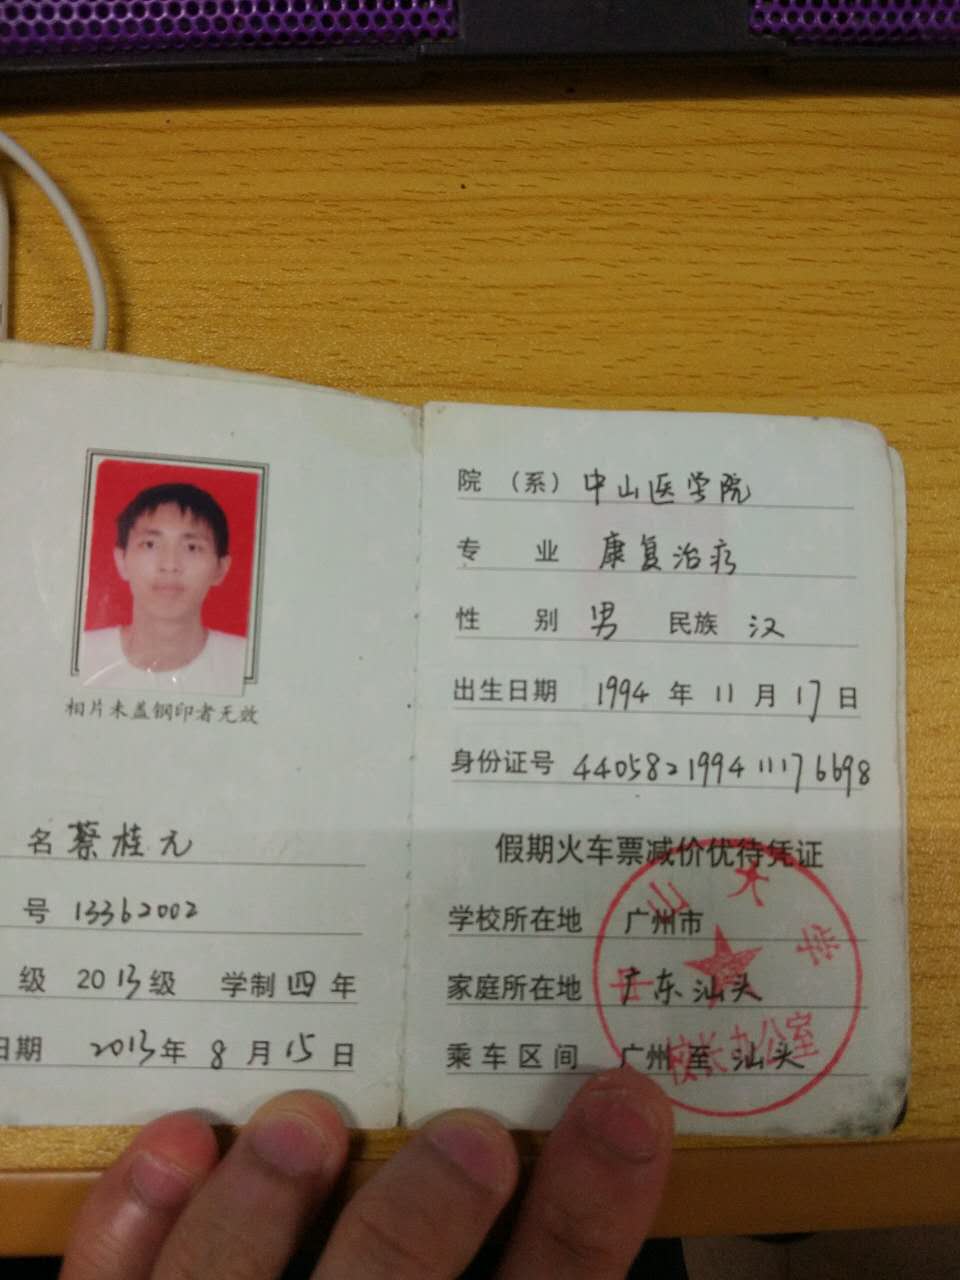 相片未盖钢印者无效
名 蔡桂元
号 13362002
级 2013级 学制四年
日期 2013年 8 月 15 日
院（系）中山医学院
专 业 康复治疗
性 别 男 民族 汉
出生日期 1994 年 11 月 17 日
身份证号 440582199411176698
假期火车票减价优待凭证
学校所在地 广州市
家庭所在地 广东汕头
乘车区间 广州至汕头
中山大学
校长办公室